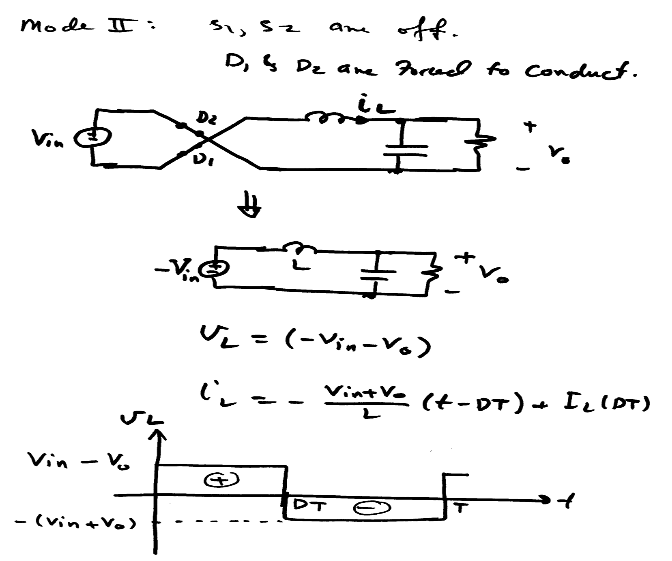 Mode II : S1, S2 are off.
D1 & D2 are forced to conduct.
iL
D2
Vin
D1
+
Vo
-
⇓
-Vin
L
+
Vo
-
VL = (-Vin - Vo)
iL = - Vin+Vo / L (t - DT) + IL(DT)
VL
Vin - Vo
+
DT
-
T
t
-(Vin+Vo)